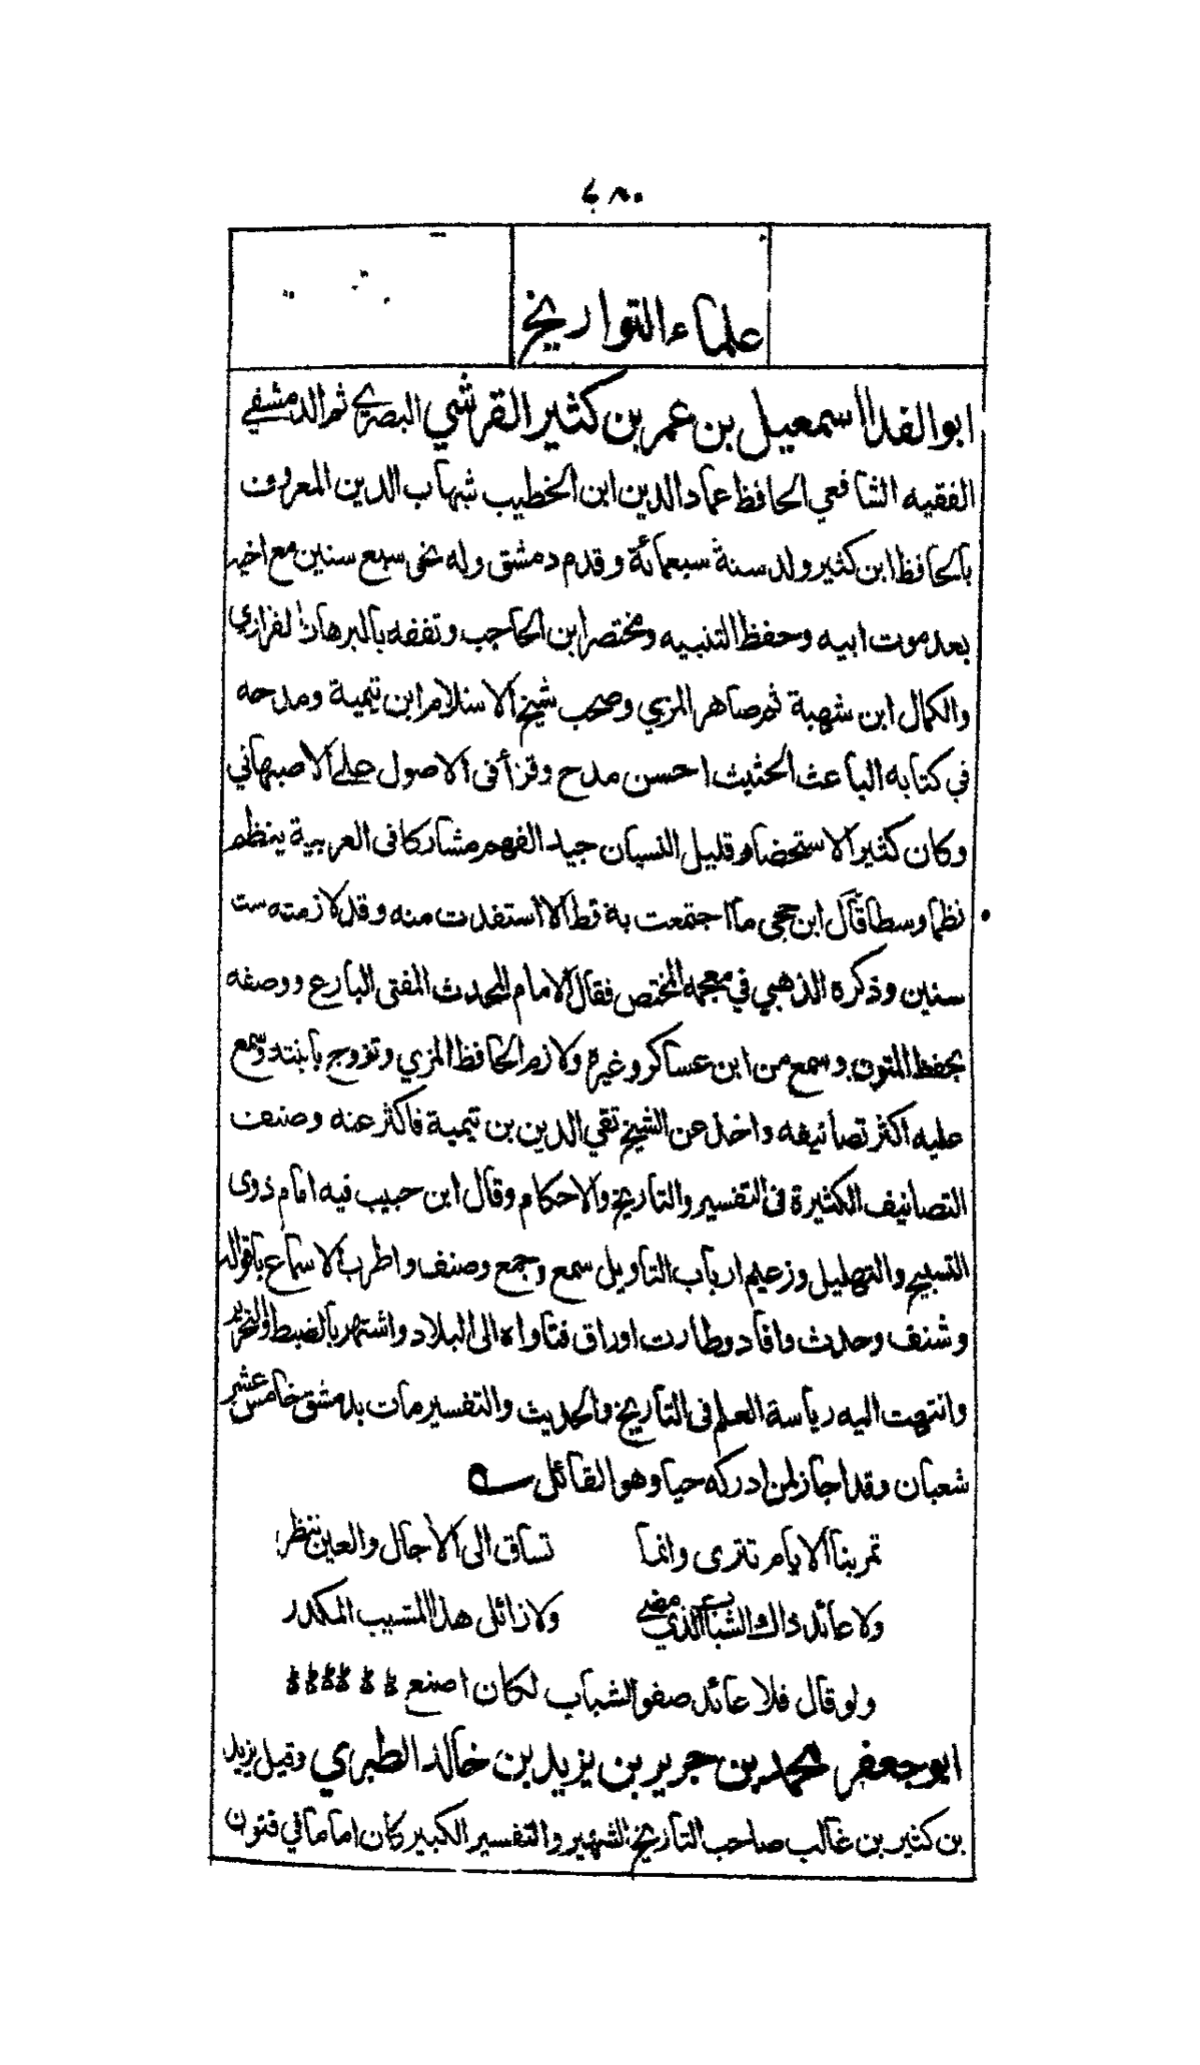 ٤٨٠
علماء التواريخ
ابو الفدا اسمعيل بن عمر بن كثير القرشي البصري ثم الدمشقي
الفقيه الشافعي الحافظ عماد الدين ابن الخطيب شهاب الدين المعروف
بالحافظ ابن كثير ولد سنة سبعمائة وقدم دمشق وله نحو سبع سنين مع اخيه
بعد موت ابيه وحفظ التنبيه ومختصر ابن الحاجب وتفقه بالبرهان الفزازي
والكمال ابن شهبة ثم صاهر المزي وصحب شيخ الاسلام ابن تيمية ومدحه
في كتابه الباعث الحثيث احسن مدح وقرأ في الاصول على الاصبهاني
وكان كثير الاستحضار قليل النسيان جيد الفهم مشاركا في العربية ينظم
نظما وسطا قال ابن حجي ما اجتمعت به قط الا استفدت منه وقد لازمته ست
سنين وذكره الذهبي في معجمه المختص فقال الامام المحدث المفتى البارع ووصفه
بحفظ المتون وسمع من ابن عساكر وغيره ولازم الحافظ المزي وتزوج بابنته وسمع
عليه اكثر تصانيفه واخذ عن الشيخ تقي الدين بن تيمية فاكثر عنه وصنف
التصانيف الكثيرة في التفسير والتاريخ والاحكام وقال ابن حبيب فيه امام ذوى
التسبيح والتهليل وزعيم ارباب التاويل سمع وجمع وصنف واطرب الاسماع باقواله
وشنف وحدث وافاد وطارت اوراق فتاواه الى البلاد واشتهر بالضبط والتحرير
وانتهت اليه رياسة العلم في التاريخ والحديث والتفسير مات بدمشق خامس عشر
شعبان وقد اجاز لمن ادركه حيا وهو القائل
تمر بنا الايام تترى وانما تساق الى الاجال والعين تنظر
ولا عائد ذاك الشباب الذي مضى ولا زائل هذا المشيب المكدر
ولو قال فلا عائد صفو الشباب لكان اصنع
ابو جعفر محمد بن جرير بن يزيد بن خالد الطبري وقيل يزيد
بن كثير بن غالب صاحب التاريخ الشهير والتفسير الكبير كان اماما في فنون